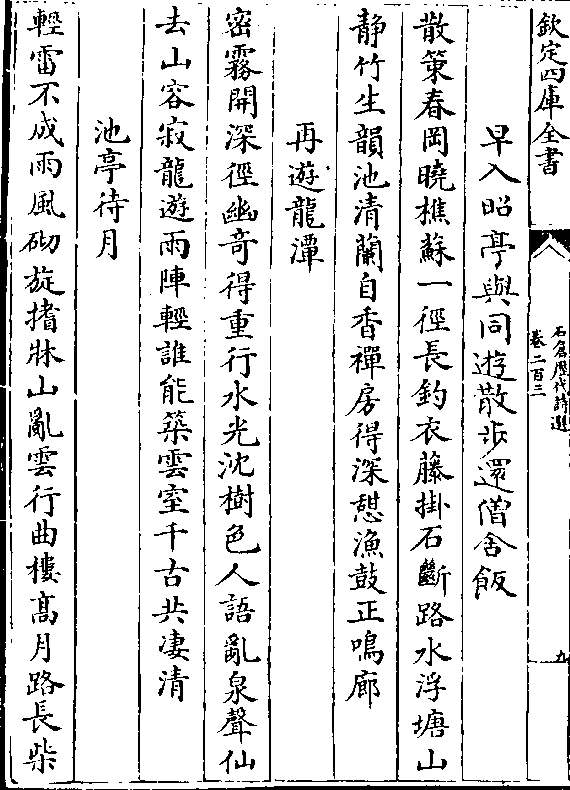 欽定四庫全書
石倉歷代詩選
卷二百三
九
早入昭亭與同遊散步還僧舍飯
散策春岡曉樵蘇一徑長鈎衣藤掛石斷路水浮塘山
靜竹生韻池清蘭自香禪房得深憇漁鼓正鳴廊
再遊龍潭
密霧開深徑幽竒得重行水光沈樹色人語亂泉聲仙
去山容寂龍遊雨陣輕誰能築雲室千古共凄清
池亭待月
輕雷不成雨風砌旋揩牀山亂雲行曲樓髙月路長柴